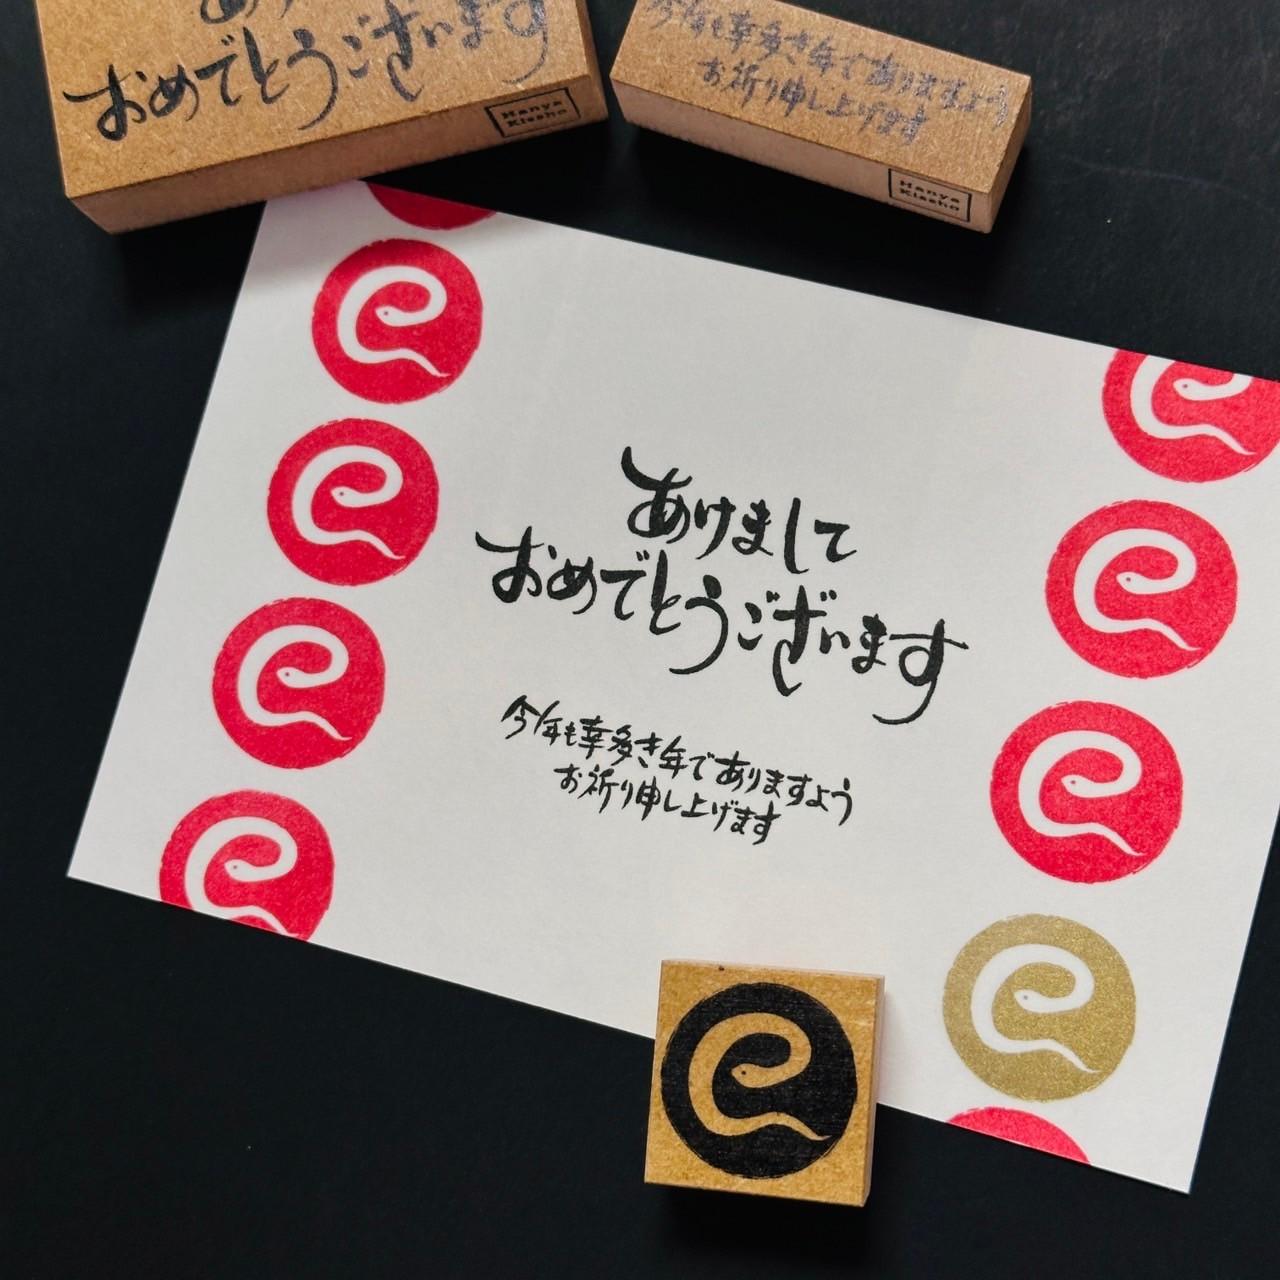 おめでとうございます
Hanya
Kissho
今年も幸多き年でありますよう
お祈り申し上げます
Hanya
Kissho
あけまして
おめでとうございます
今年も幸多き年でありますよう
お祈り申し上げます